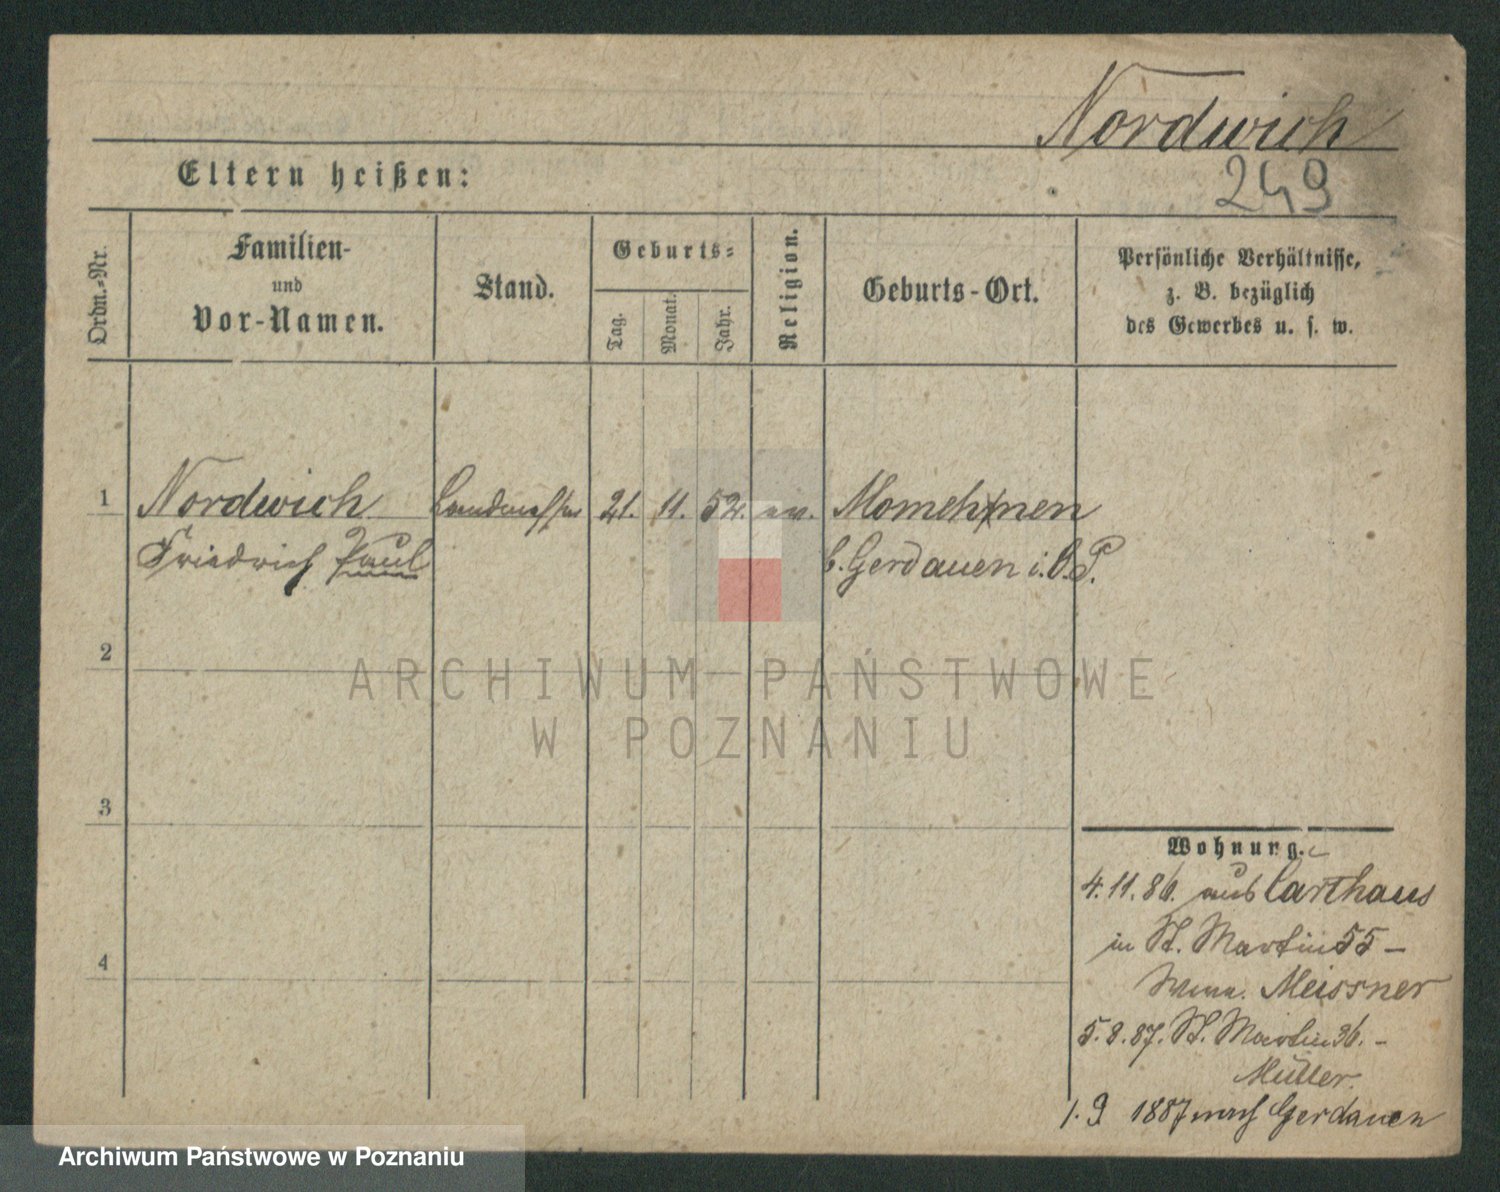 Nordwich
249
Eltern heißen:
Ordn.-Nr.
Familien-
und
Vor-Namen.
Stand.
Geburts-
Tag.
Monat.
Jahr.
Religion.
Geburts-Ort.
Persönliche Verhältnisse,
z. B. bezüglich
des Gewerbes u. s. w.
1 Nordwich Landmesser 21. 11. 52. ev. Momehnen
Friedrich Paul b. Gerdauen i. O. P.
2
ARCHIWUM PAŃSTWOWE
W POZNANIU
3
Wohnung.
4. 11. 86. aus Carthaus
in St. Martin 55 -
4
Meissner
5. 8. 87. St. Martin 36. -
Müller.
1. 9 1887 nach Gerdauen
Archiwum Państwowe w Poznaniu